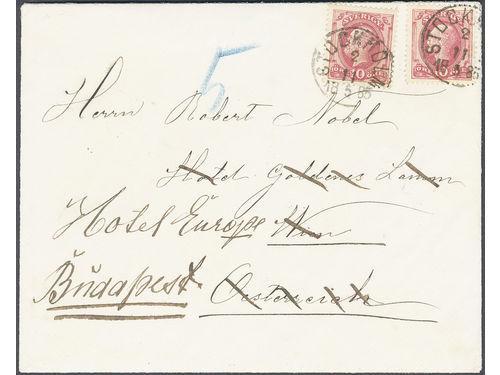 SVERIGE SVERIGE
STOCKHOLM STOCKH
2 2
11 11
10
5
Herrn Robert Nobel
Hotel Goldenes Lamm
Hotel Europe Wien
Budapest Oesterreich